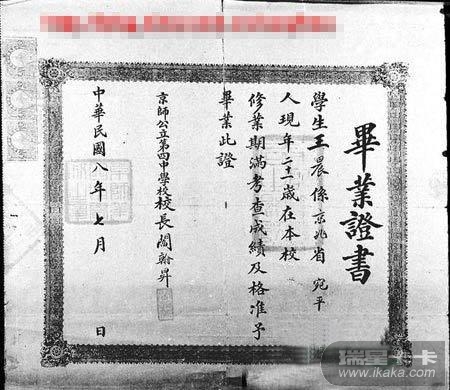 畢業證書
學生王晨係京兆省宛平
人現年二十一歲在本校
修業期滿考查成績及格准予
畢業此證
京師公立第四中學校校長閻翰昇
中華民國八年七月 日
瑞星卡卡
www.ikaka.com